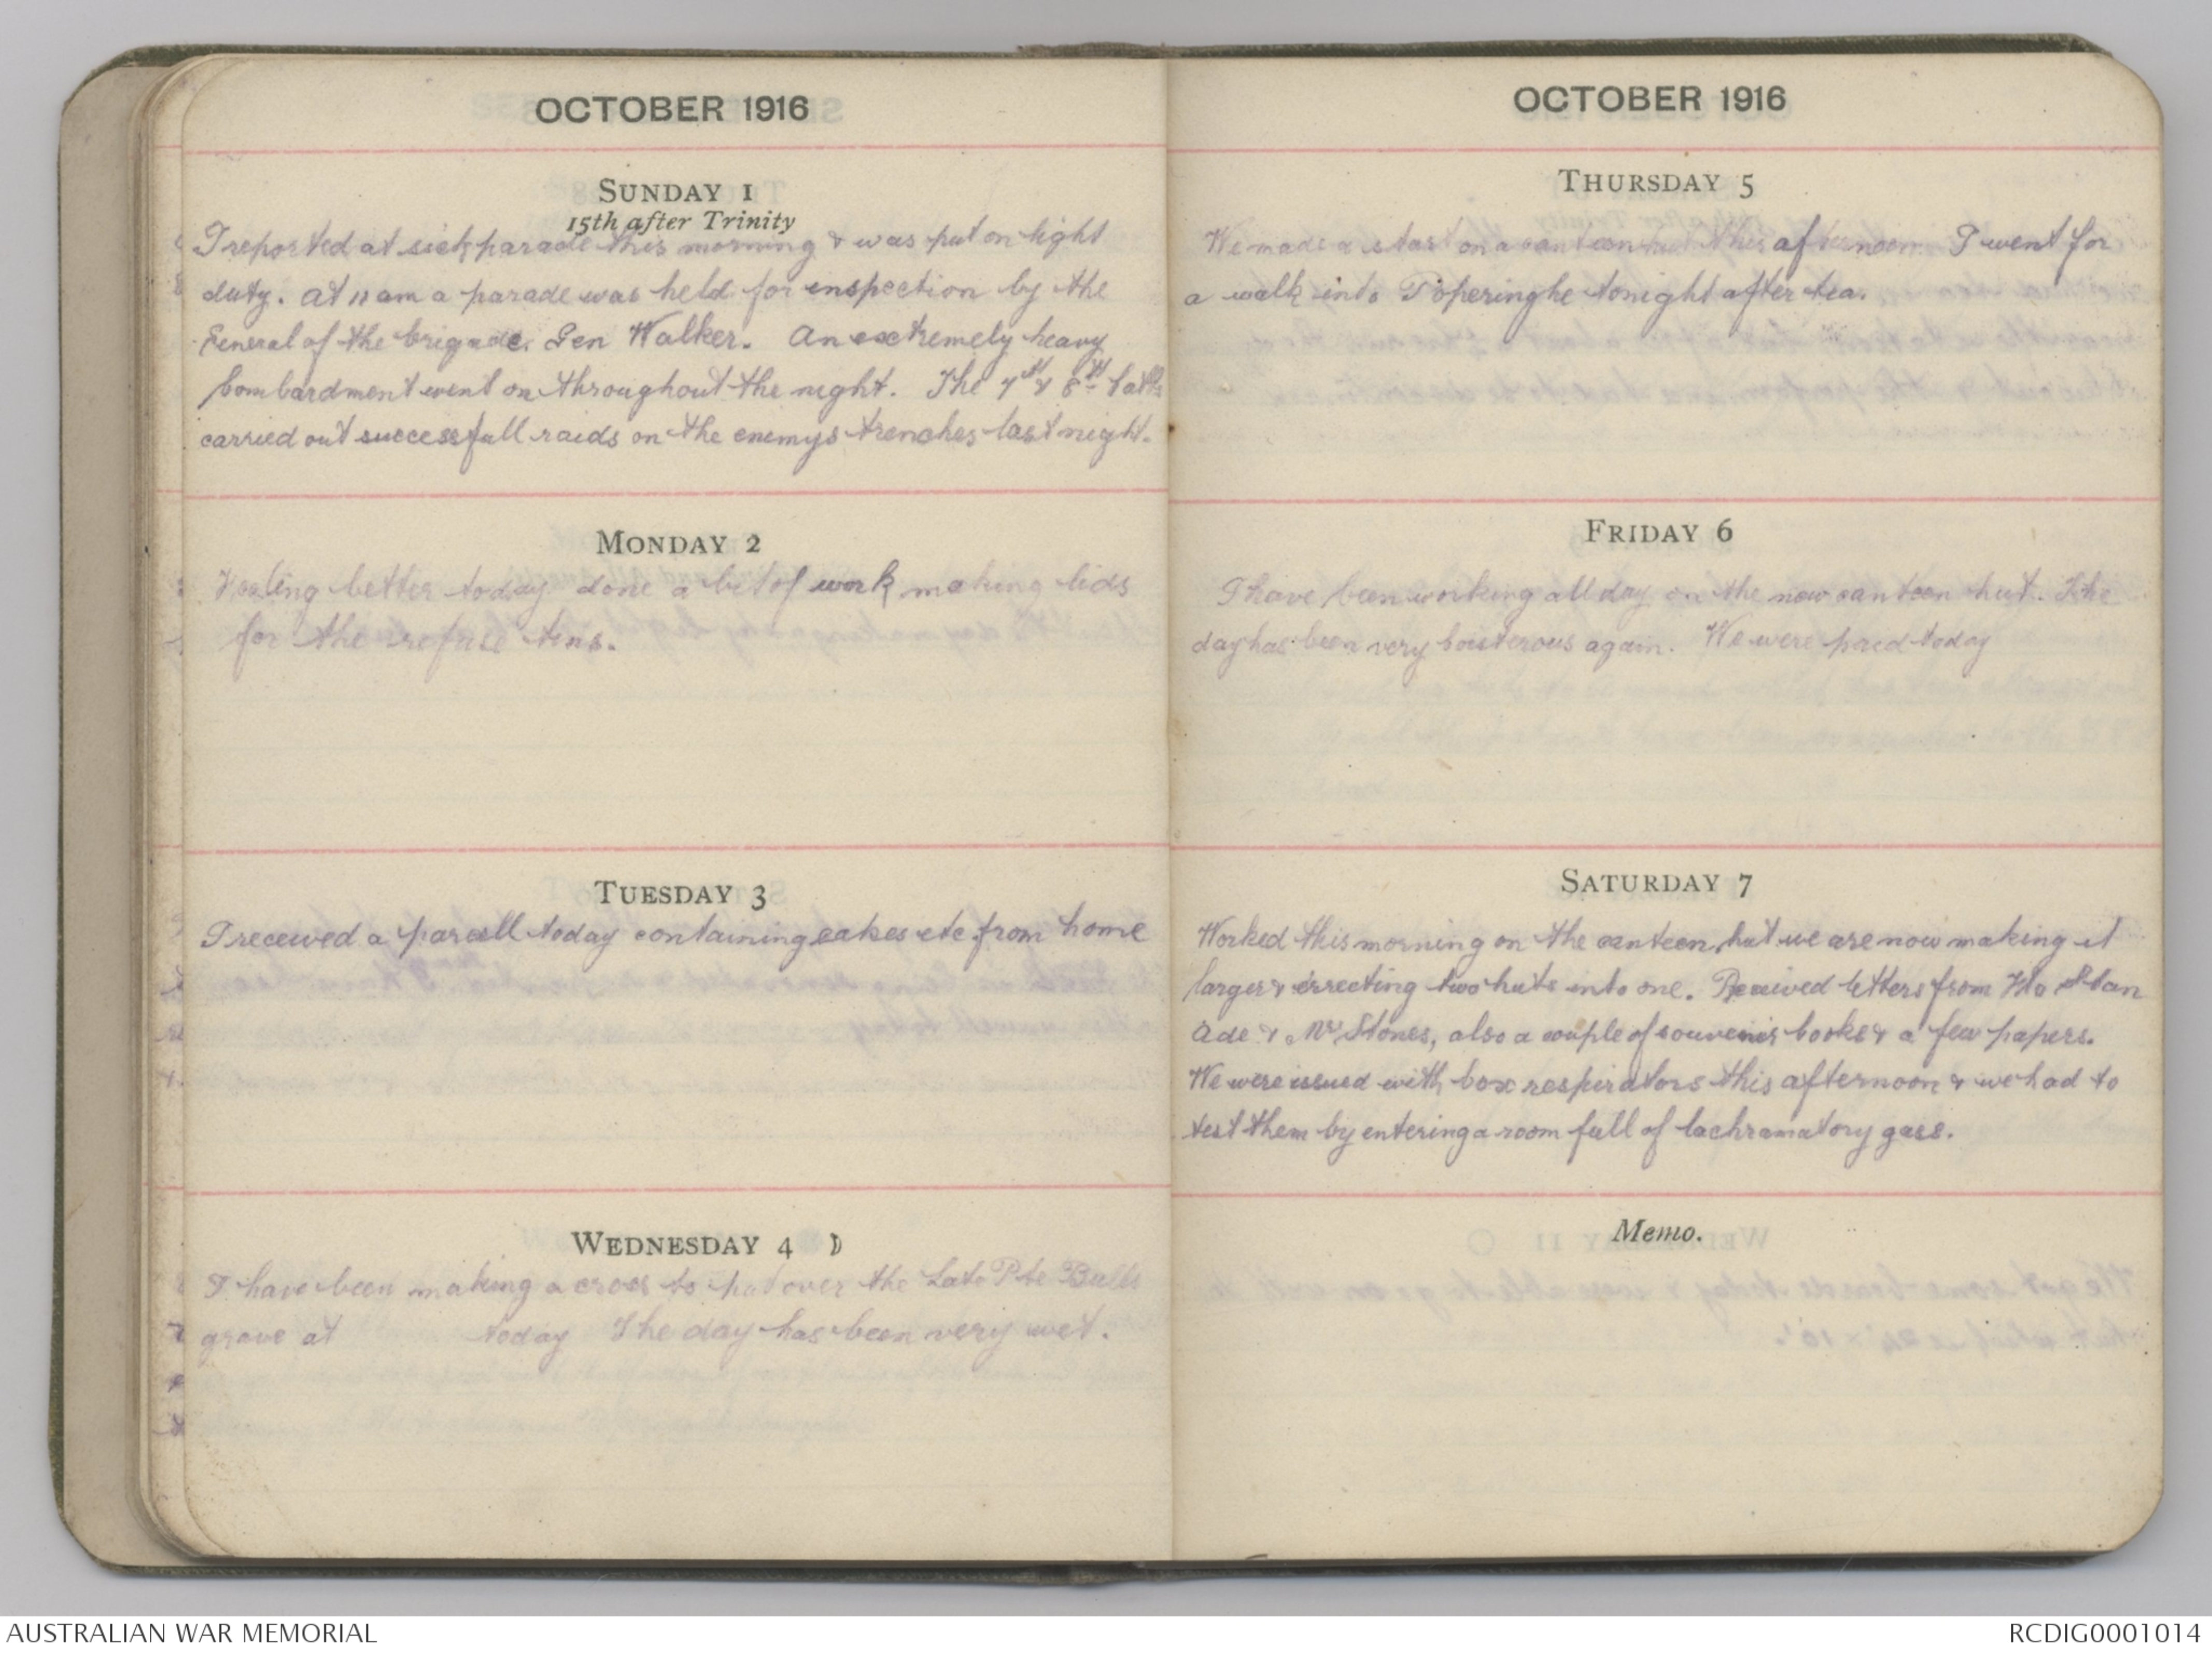 OCTOBER 1916
SUNDAY 1
15th after Trinity
I reported at sick parade this morning & was put on light
duty. At 11 am a parade was held for inspection by the
General of the brigade. Gen Walker. An extremely heavy
bombardment went on throughout the night. The 7th & 8th Batts
carried out successfull raids on the enemys trenches last night.
MONDAY 2
Feeling better today done a bit of work making lids
for the refuse tins.
TUESDAY 3
I received a parcell today containing cakes etc from home
WEDNESDAY 4
I have been making a cross to put over the Late Pte Bulls
grave at today The day has been very wet.
OCTOBER 1916
THURSDAY 5
We made a start on a canteen hut this afternoon. I went for
a walk into Poperinghe tonight after tea.
FRIDAY 6
I have been working all day on the new canteen hut. The
day has been very boisterous again. We were paid today
SATURDAY 7
Worked this morning on the canteen, but we are now making it
larger & errecting two huts into one. Received letters from Stan
Ade & Stones, also a couple of souvenir books & a few papers.
We were issued with box respirators this afternoon & we had to
test them by entering a room full of lachramatory gass.
Memo.
AUSTRALIAN WAR MEMORIAL
RCDIG0001014